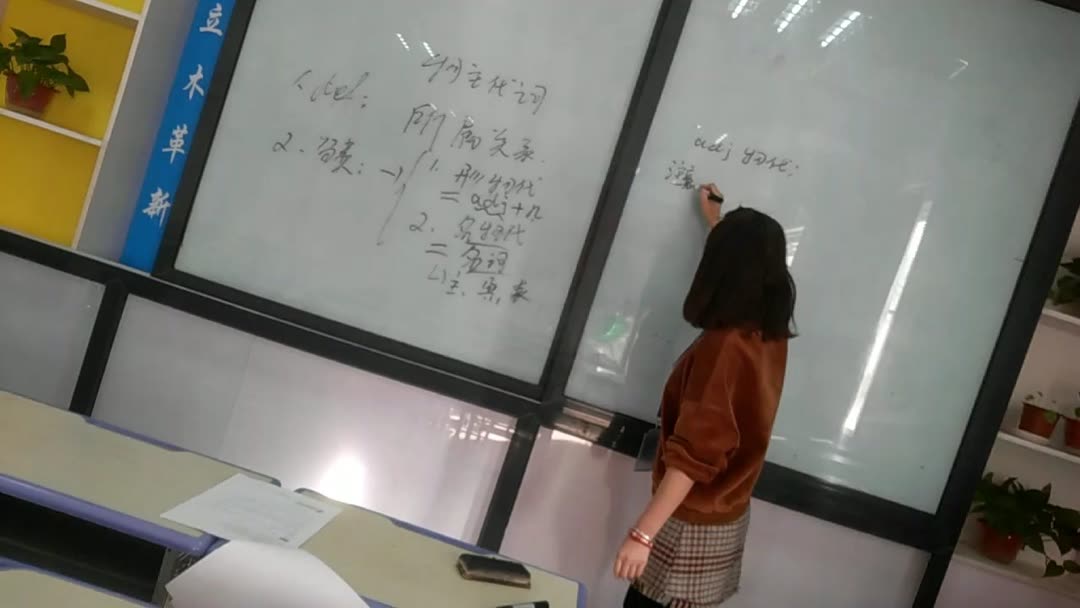 立木革新
物主代词
1. def:
所属关系.
2. 分类: → 1. 形物代
= adj + n
2. 名物代
= 名词
↳主、宾、表
adj 物代:
注意